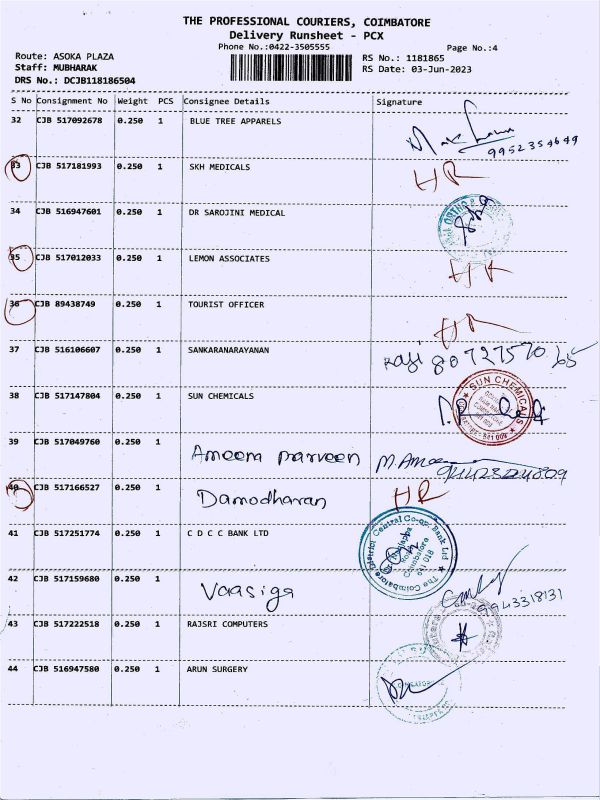 THE PROFESSIONAL COURIERS, COIMBATORE
Delivery Runsheet - PCX
Phone No.:0422-3505555
Page No.:4
Route: ASOKA PLAZA
RS No.: 1181865
Staff: MUBHARAK
RS Date: 03-Jun-2023
DRS No.: DCJB118186504
S No Consignment No Weight PCS Consignee Details Signature
32 CJB 517092678 0.250 1 BLUE TREE APPARELS
9952354649
33 CJB 517181993 0.250 1 SKH MEDICALS HR
34 CJB 516947601 0.250 1 DR SAROJINI MEDICAL
ORTHO
35 CJB 517012033 0.250 1 LEMON ASSOCIATES
HR
36 CJB 89438749 0.250 1 TOURIST OFFICER
HR
37 CJB 516106607 0.250 1 SANKARANARAYANAN
Raji 8072757065
38 CJB 517147804 0.250 1 SUN CHEMICALS
SUN CHEMICALS
39 CJB 517049760 0.250 1
Ameem Parveen M.Ameem
40 CJB 517166527 0.250 1 HR
Damodharan
41 CJB 517251774 0.250 1 C D C C BANK LTD
The Coimbatore District Central Co-op. Bank Ltd
Coimbatore
641 018
42 CJB 517159680 0.250 1
Vaasiga
9943318131
43 CJB 517222518 0.250 1 RAJSRI COMPUTERS
44 CJB 516947580 0.250 1 ARUN SURGERY